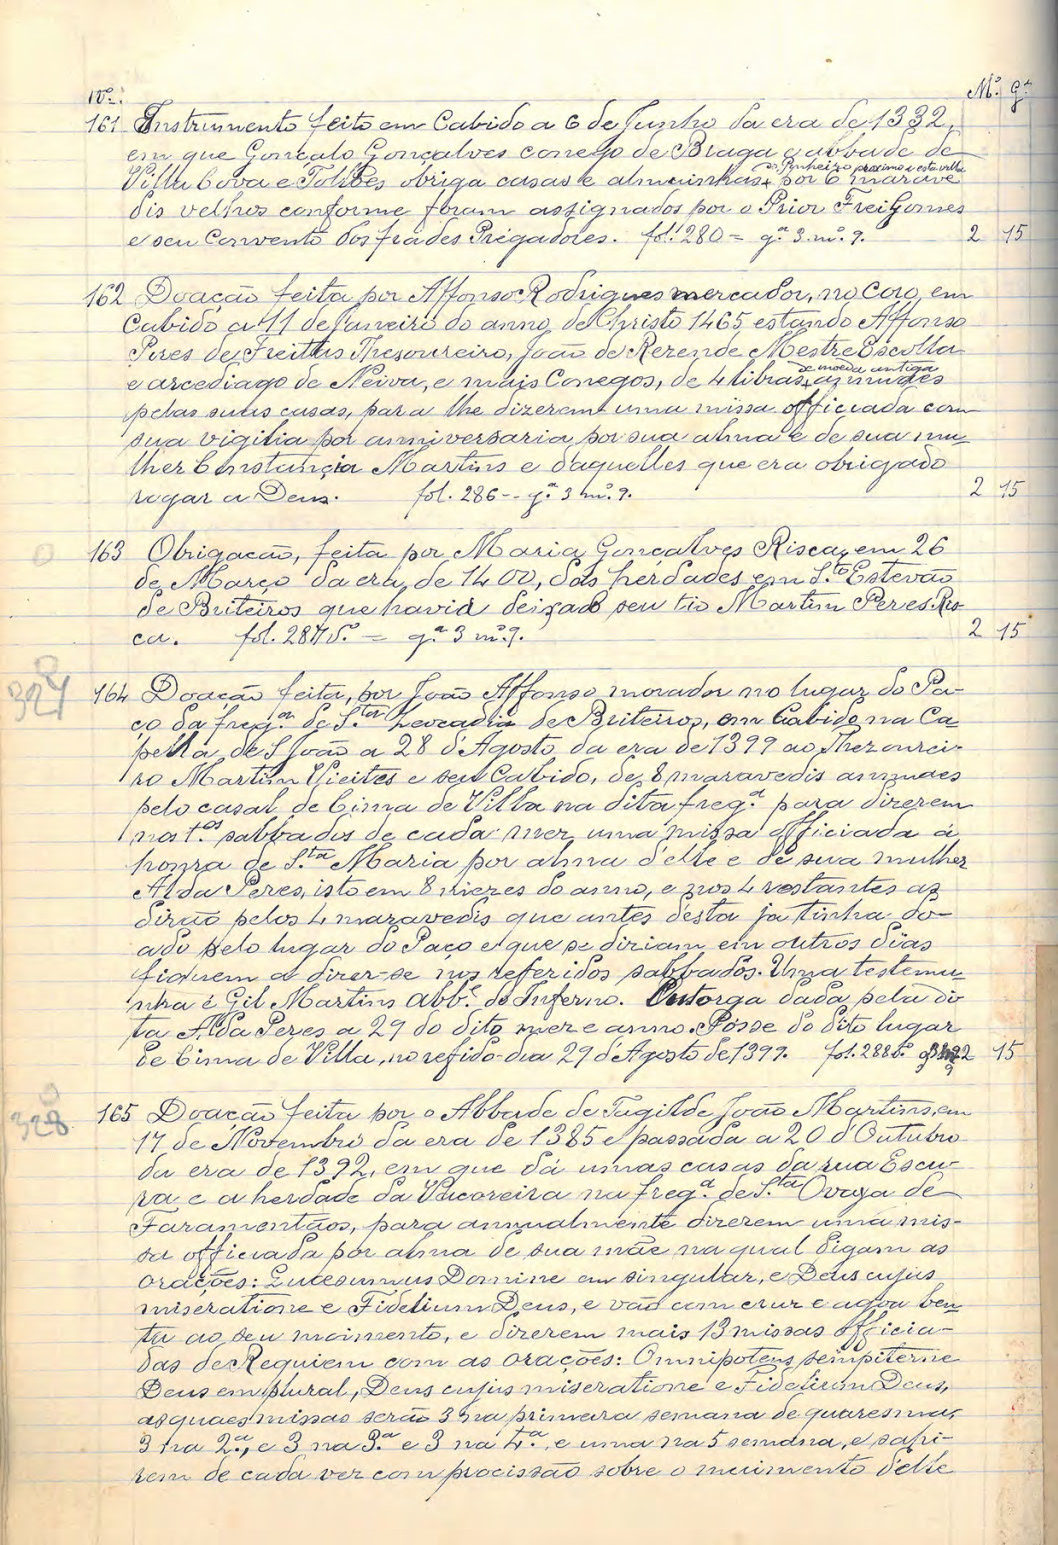 Nº. Mº. Gª
161 Instrumento feito em Cabido a 6 de Junho da era de 1332,
em que Gonçalo Gonçalves conego de Braga e abbade de
Villa Cova e Tolões obriga casas e almuinhas + por 6 marave
do Pinheiro proximo a esta villa
dis velhos conforme foram assignados por o Prior Frei Gomes
e seu Convento dos frades Prégadores. fol. 280 = gª. 3. mº. 9. 2 15
162 Doação feita por Affonso Rodrigues mercador, no Coro, em
Cabido a 11 de Janeiro do anno de Christo 1465 estando Affonso
Peres de Freittas Thesoureiro, João de Rezende Mestre Escolla
e arcediago de Neiva, e mais Conegos, de 4 libras + annudes
de moeda antiga
pelas suas casas, para lhe dizerem uma missa officiada com
sua vigilia por anniversaria por sua alma e de sua mu-
lher Constança Martins e d'aquelles que era obrigado
rogar a Deus. fol. 286 -- gª. 3 mº. 9. 2 15
163 Obrigação, feita por Maria Gonçalves Risca, em 26
de Março da era de 1400, das herdades em S.to Estevão
de Briteiros que havia deixado seu tio Martim Peres Ris-
ca. fol. 287 vº. = gª. 3 mº. 9. 2 15
327
164 Doação feita, por João Affonso morador no lugar do Pa-
ço da freg.ª de S.ta Leocadia de Briteiros, em Cabido na Ca
pella de S João a 28 d'Agosto da era de 1399 ao Thezourei-
ro Martim Vieites e seu Cabido, de 8 maravedis annuaes
pelo casal de Cima de Villa na dita freg.ª para dizerem
nos 1.os sabbados de cada mez uma missa officiada á
honra de S.ta Maria por alma d'elle e de sua mulher
Alda Peres, isto em 8 mezes do anno, e nos 4 restantes as
dirão pelos 4 maravedis que antes desta ja tinha do-
ado pelo lugar do Paço e que se diriam em outros dias
fiquem a dizer-se nos referidos sabbados. Uma testemu-
nha é Gil Martins abb.e do Inferno. Outorga dada pela di
ta Alda Peres a 29 do dito mez e anno. Pósse do dito lugar
de Cima de Villa, no refido dia 29 d'Agosto de 1399. fol. 288 vº. 2 15
328
165 Doação feita por o Abbade de Tagilde João Martins, em
17 de Novembro da era de 1385 e passada a 20 d'Outubro
da era de 1392, em que dá umas casas da rua Escu-
ra e a herdade da Vacoreira na freg.ª de S.ta Ovaya de
Faramontãos, para annualmente dizerem uma mis-
sa officiada por alma de sua mãe na qual digam as
orações: Quesumus Domine em singular, e Deus cujus
miseratione e Fidelium Deus, e vão com cruz e agoa ben-
ta ao seu moimento, e dizerem mais 13 missas officia-
das de Requiem com as orações: Omnipotens sempiterne
Deus em plural, Deus cujus miseratione e Fidelium Deus,
as quaes missas serão 3 na primeira semana de quaresma,
3 na 2.ª, e 3 na 3.ª e 3 na 4.ª, e uma na 5 semana, e sahi-
rem de cada vez com procissão sobre o muimento delle